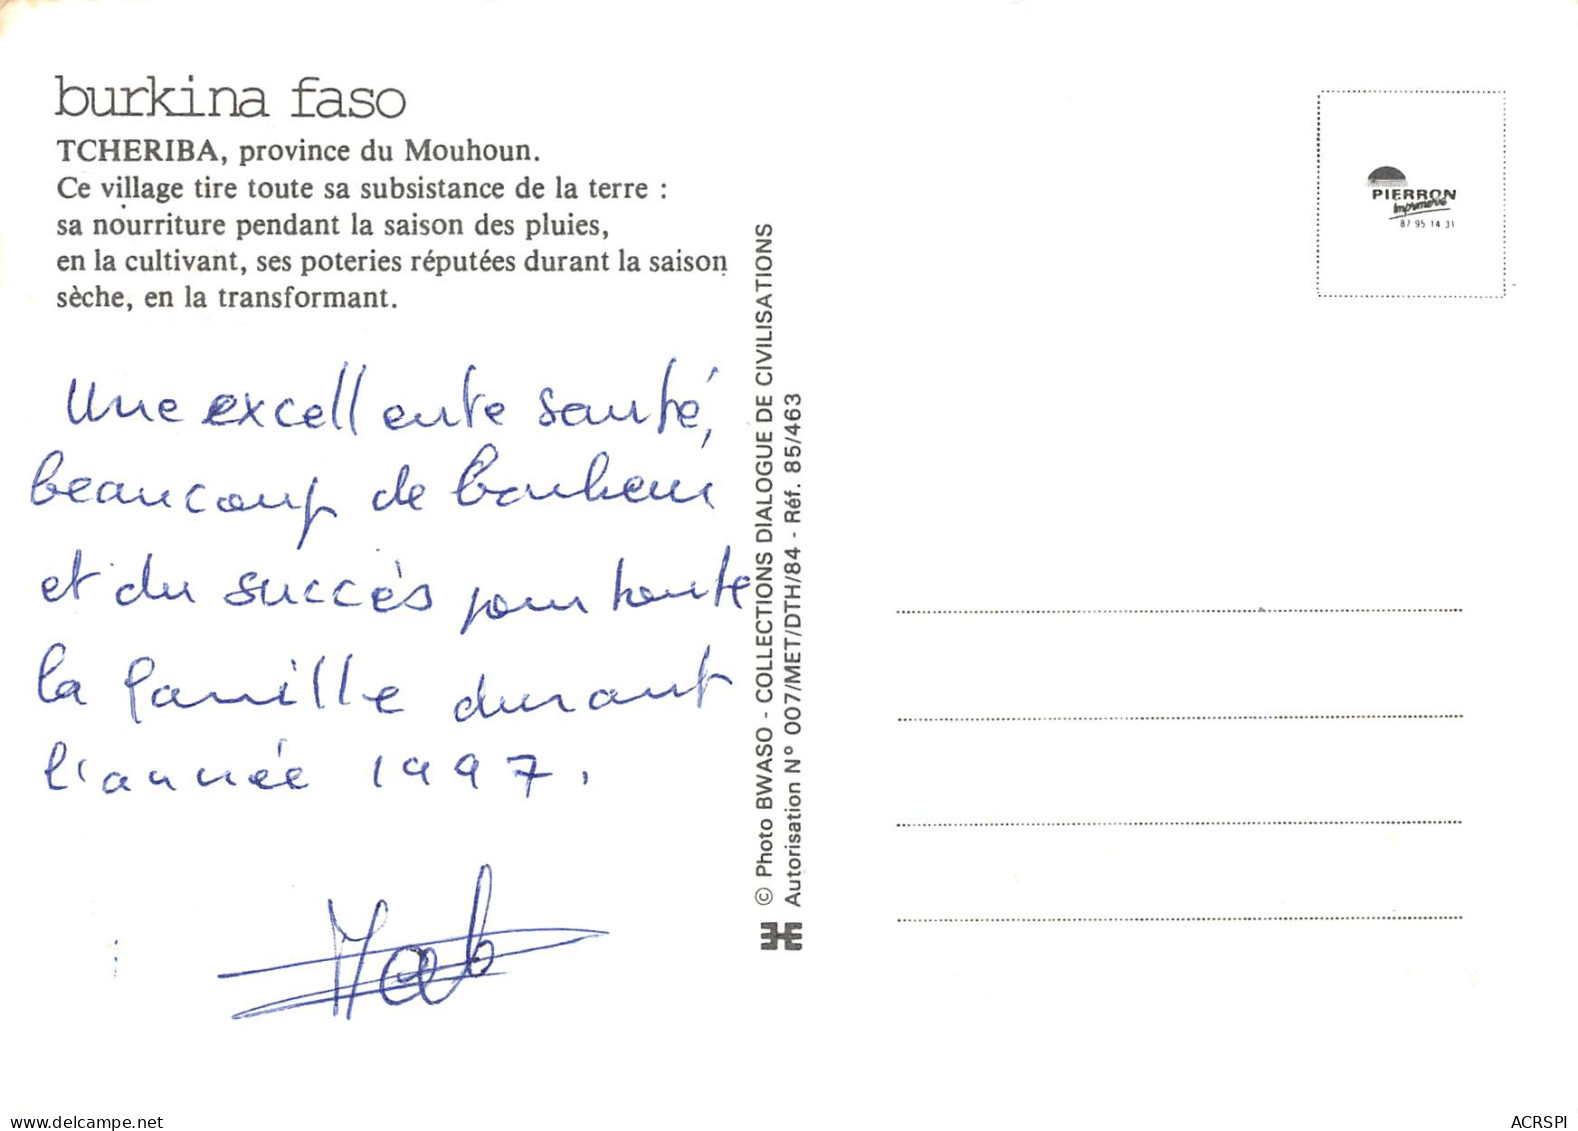 burkina faso
TCHERIBA, province du Mouhoun.
Ce village tire toute sa subsistance de la terre :
sa nourriture pendant la saison des pluies,
en la cultivant, ses poteries réputées durant la saison
sèche, en la transformant.
Une excellente santé,
beaucoup de bonheur
et du succès pour toute
la famille durant
l'année 1997.
© Photo BWASO - COLLECTIONS DIALOGUE DE CIVILISATIONS
Autorisation N° 007/MET/DTH/84 - Réf. 85/463
PIERRON
Imprimerie
87 95 14 31
delcampe.net
ACRSPI